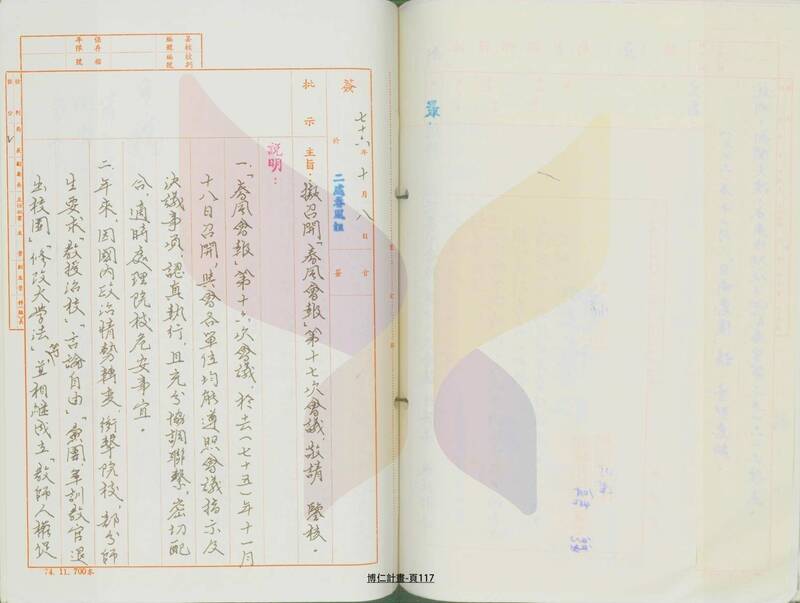 簽
七十六年十月八日
於
二處春風組
簽會
批示
主旨：擬召開「春風會報」第十七次會議，敬請　鑒核。
說明：
一、「春風會報」第十六次會議，於去(七十五)年十一月
十八日召開，與會各單位均能遵照會議指示及
決議事項，認真執行，且充分協調聯繫，密切配
合，適時處理院校危安事宜。
二、年來，因國內政治情勢轉變，衝擊院校，部分師
生要求「教授治校」「言論自由」「黨團、軍訓教官退
出校園」「修改大學法」等並相繼成立「教師人權促
74. 11. 700本
博仁計畫-頁117